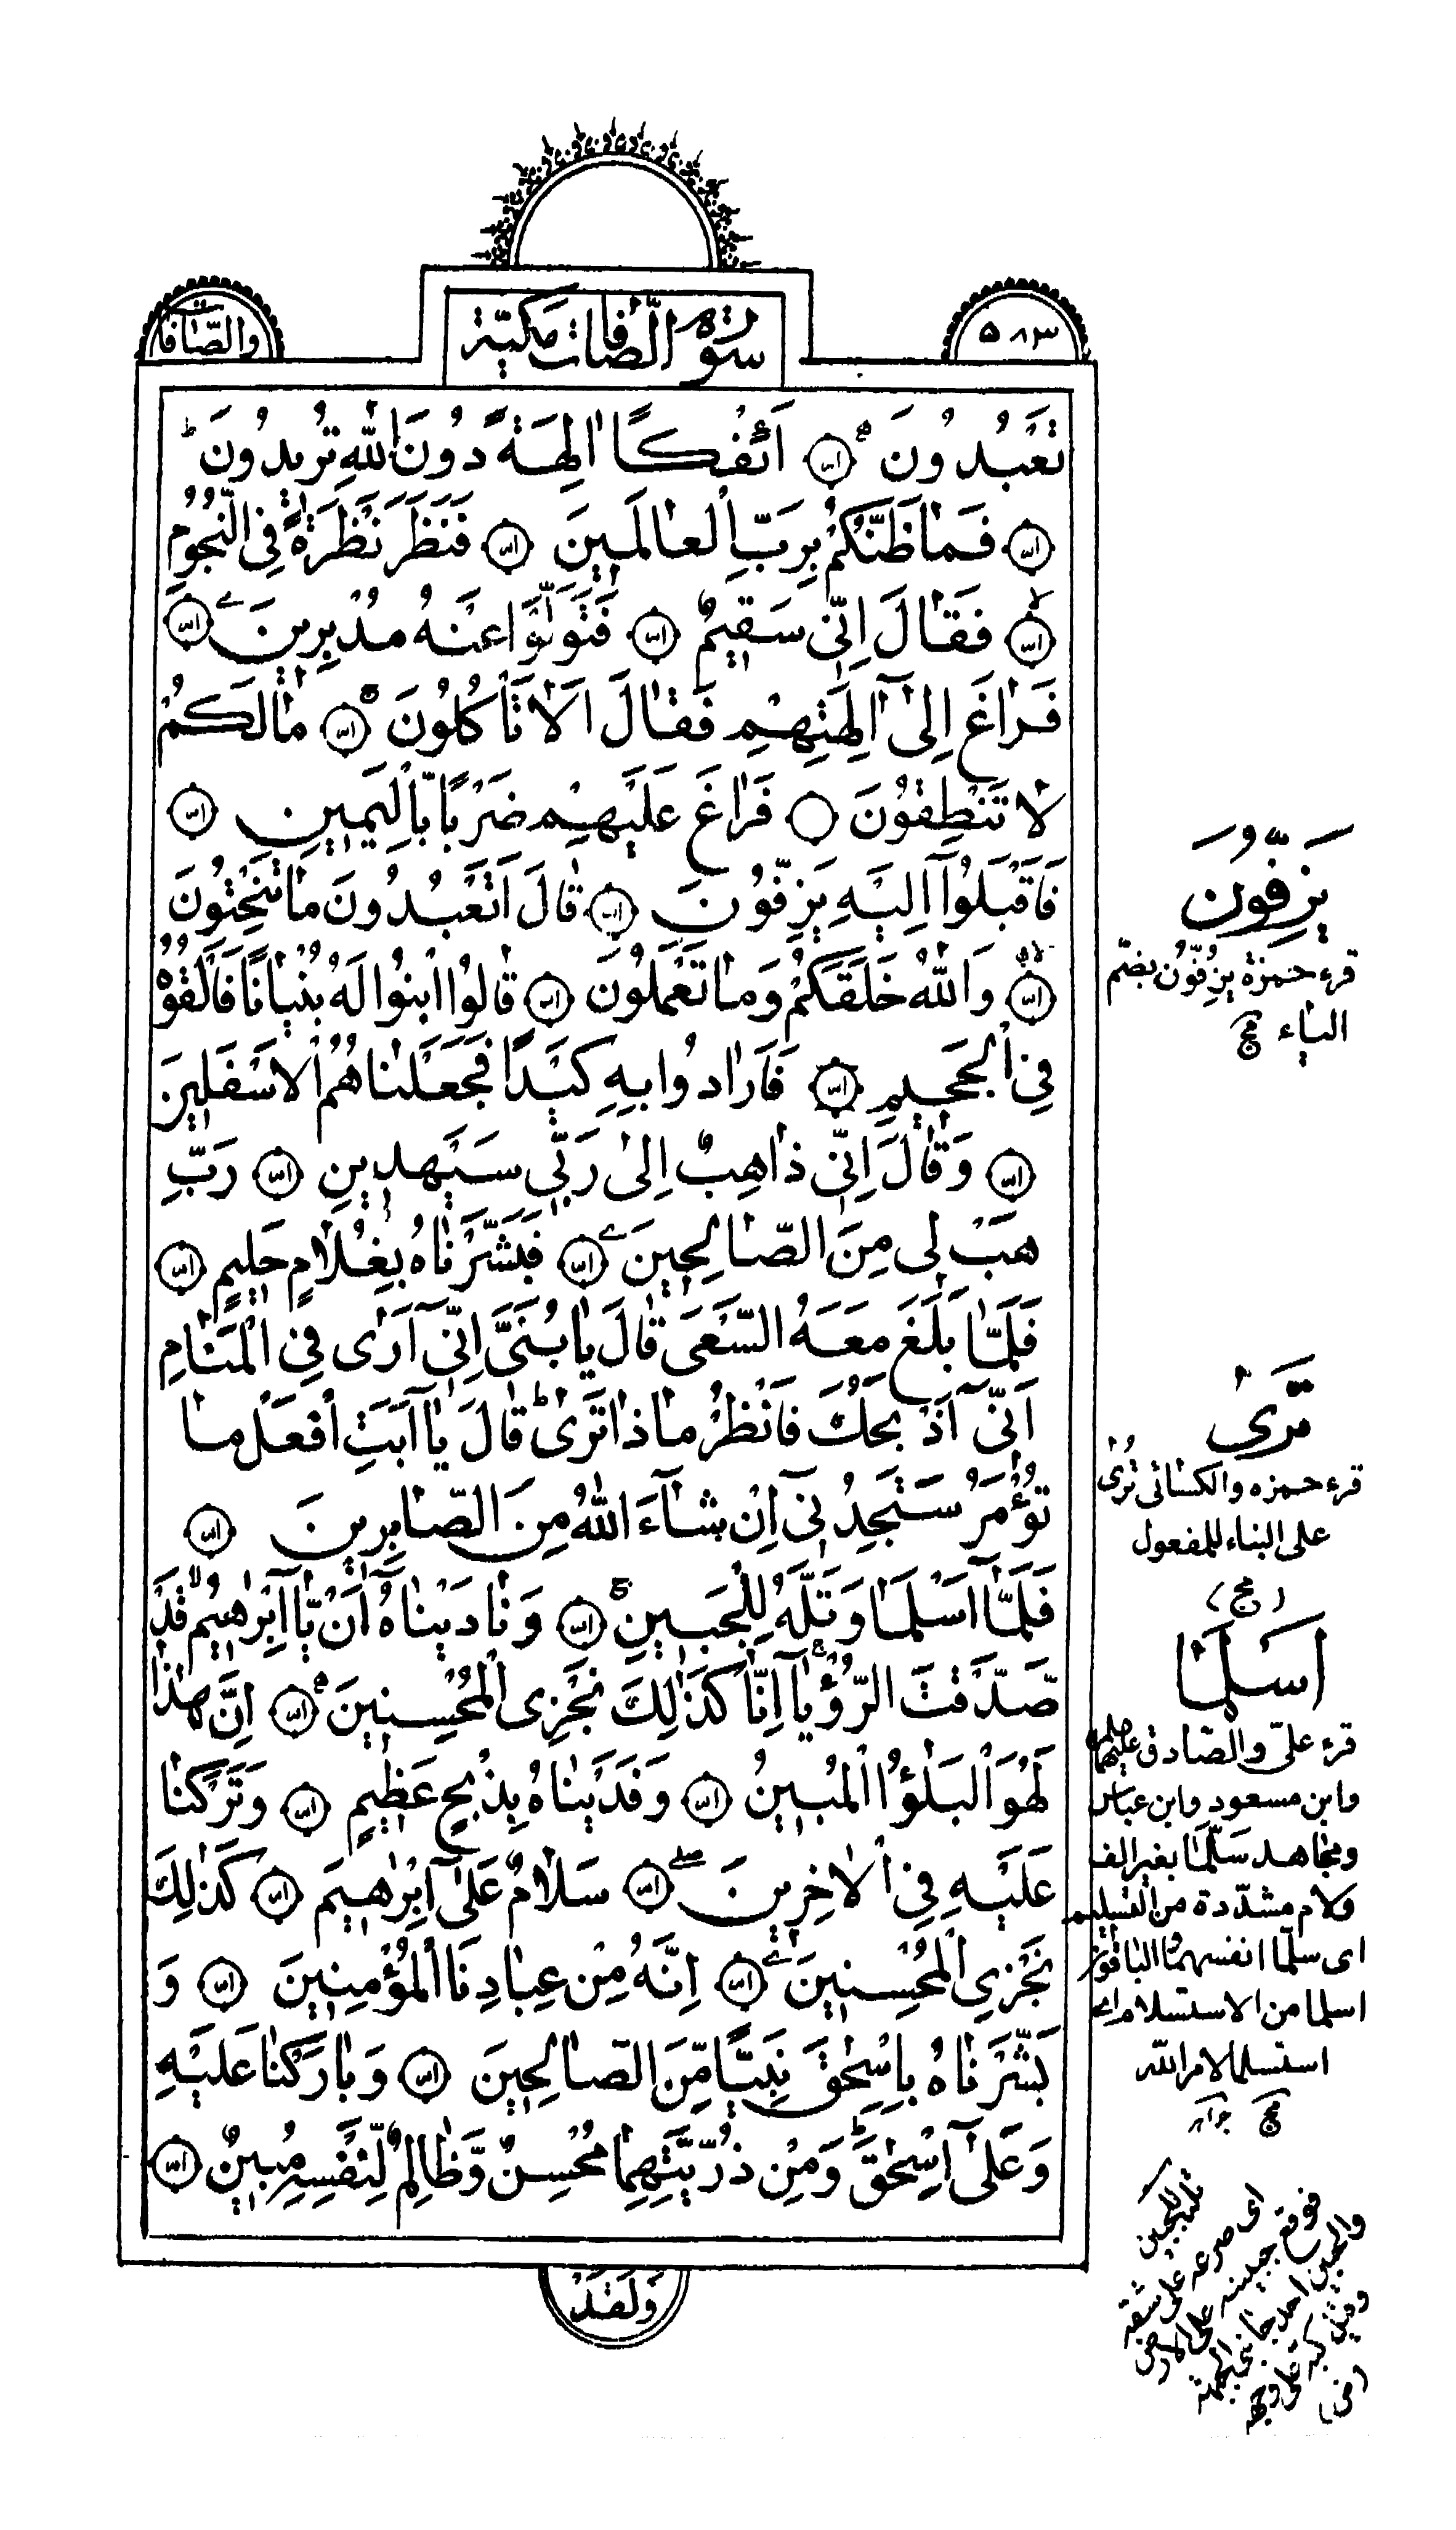 والصّافا
سورة الصّافات مكيّة
٥٨٣
تَعْبُدُونَ أَئِفْكًا اٰلِهَةً دُونَ اللهِ تُرِيدُونَ
فَمَا ظَنُّكُمْ بِرَبِّ الْعَالَمِينَ فَنَظَرَ نَظْرَةً فِي النُّجُومِ
فَقَالَ اِنِّي سَقِيمٌ فَتَوَلَّوْا عَنْهُ مُدْبِرِينَ
فَرَاغَ اِلٰى اٰلِهَتِهِمْ فَقَالَ اَلَا تَأْكُلُونَ مَا لَكُمْ
لَا تَنْطِقُونَ فَرَاغَ عَلَيْهِمْ ضَرْبًا بِالْيَمِينِ
فَاَقْبَلُوا اِلَيْهِ يَزِفُّونَ قَالَ اَتَعْبُدُونَ مَا تَنْحِتُونَ
وَاللهُ خَلَقَكُمْ وَمَا تَعْمَلُونَ قَالُوا ابْنُوا لَهُ بُنْيَانًا فَاَلْقُوهُ
فِي الْجَحِيمِ فَاَرَادُوا بِهِ كَيْدًا فَجَعَلْنَاهُمُ الْاَسْفَلِينَ
وَقَالَ اِنِّي ذَاهِبٌ اِلٰى رَبِّي سَيَهْدِينِ رَبِّ
هَبْ لِي مِنَ الصَّالِحِينَ فَبَشَّرْنَاهُ بِغُلَامٍ حَلِيمٍ
فَلَمَّا بَلَغَ مَعَهُ السَّعْيَ قَالَ يَا بُنَيَّ اِنِّي اَرٰى فِي الْمَنَامِ
اَنِّي اَذْبَحُكَ فَانْظُرْ مَاذَا تَرٰى قَالَ يَا اَبَتِ افْعَلْ مَا
تُؤْمَرُ سَتَجِدُنِي اِنْ شَاءَ اللهُ مِنَ الصَّابِرِينَ
فَلَمَّا اَسْلَمَا وَتَلَّهُ لِلْجَبِينِ وَنَادَيْنَاهُ اَنْ يَا اِبْرٰهِيمُ قَدْ
صَدَّقْتَ الرُّؤْيَا اِنَّا كَذٰلِكَ نَجْزِي الْمُحْسِنِينَ اِنَّ هٰذَا
لَهُوَ الْبَلٰؤُا الْمُبِينُ وَفَدَيْنَاهُ بِذِبْحٍ عَظِيمٍ وَتَرَكْنَا
عَلَيْهِ فِي الْاٰخِرِينَ سَلَامٌ عَلٰى اِبْرٰهِيمَ كَذٰلِكَ
نَجْزِي الْمُحْسِنِينَ اِنَّهُ مِنْ عِبَادِنَا الْمُؤْمِنِينَ وَ
بَشَّرْنَاهُ بِاِسْحٰقَ نَبِيًّا مِنَ الصَّالِحِينَ وَبَارَكْنَا عَلَيْهِ
وَعَلٰى اِسْحٰقَ وَمِنْ ذُرِّيَّتِهِمَا مُحْسِنٌ وَظَالِمٌ لِنَفْسِهِ مُبِينٌ
وَلَقَدْ
يَزِفُّونَ
قرء حمزة يزفّون بضمّ
الياء مج
تَرٰى
قرء حمزه والكسائى تُرٰى
على البناء للمفعول
(مج)
اَسْلَمَا
قرء علىّ والصّادق عليهما
وابن مسعود وابن عباس
ومجاهد سَلَّمَا بغير الف
ولام مشدّدة من التسليم
اى سلّما انفسهما والباقون
اسلما من الاستسلام اى
استسلما لامر الله
مج جوامع
تلّه للجبين
اى صرعه على شقّه
فوقع جبينه على الارض
والجبين احد جانبى الجبهة
وقيل كبّه على وجهه